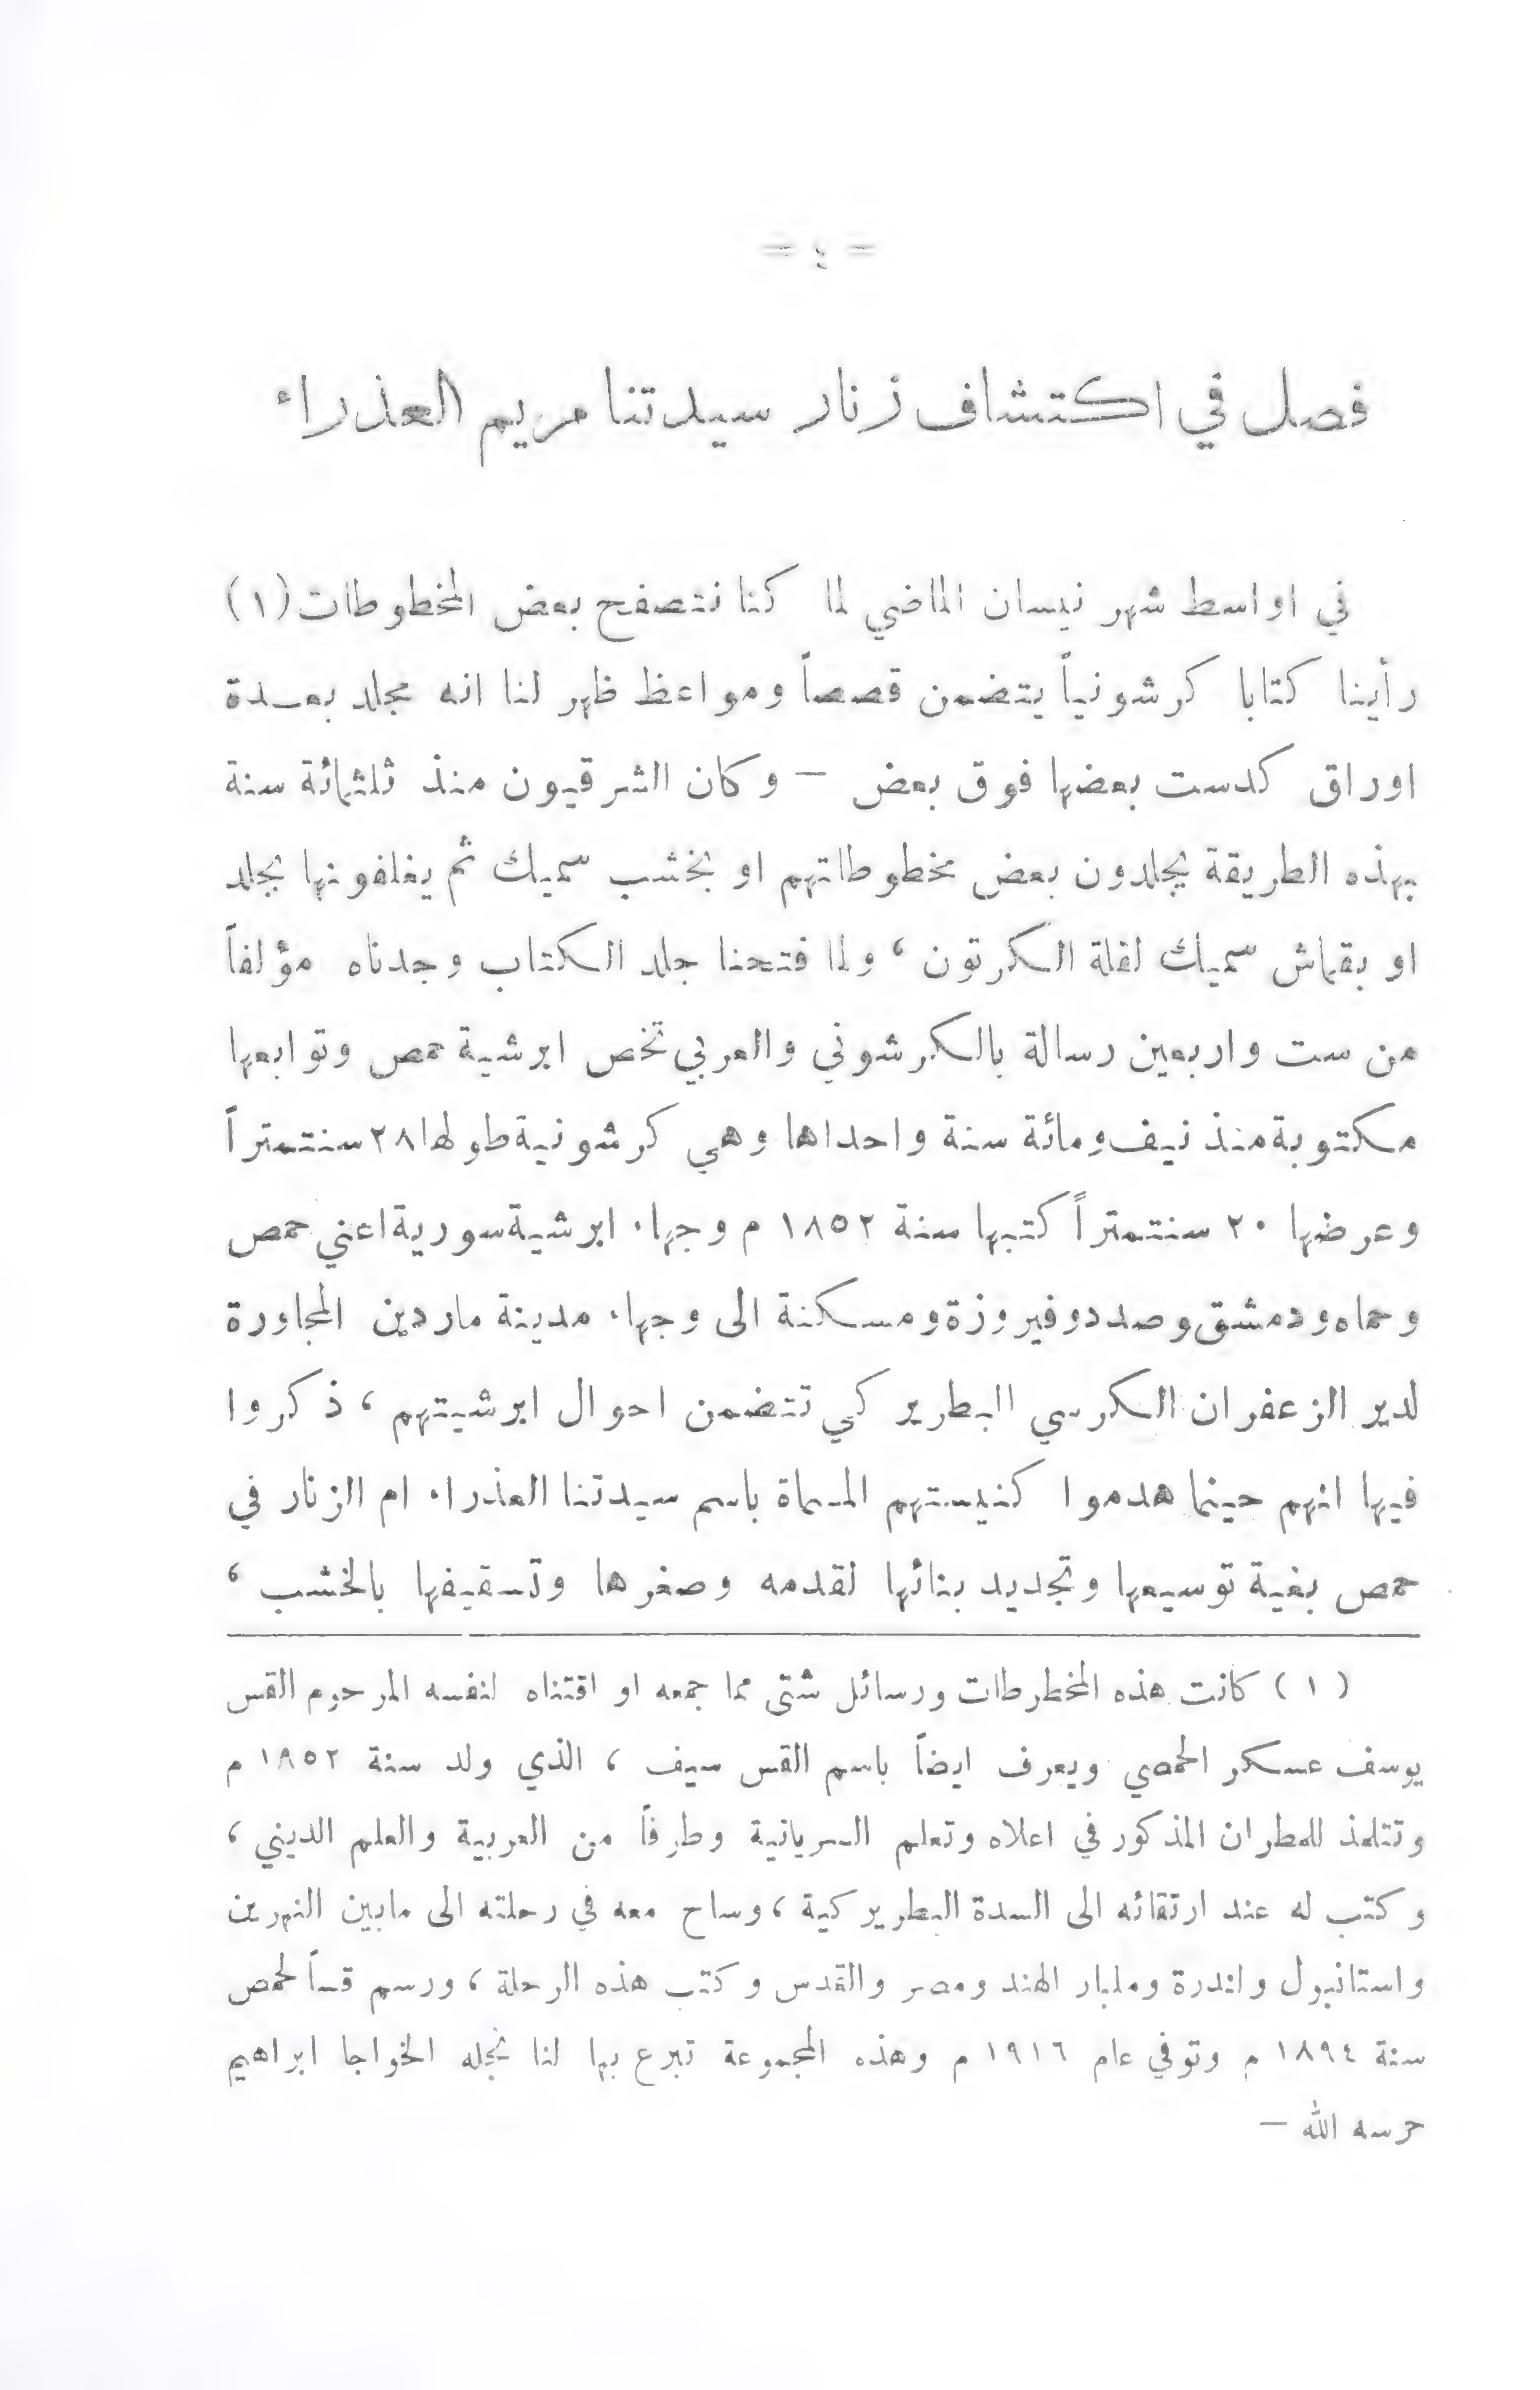 = ٤ =
فصل في اكتشاف زنار سيدتنا مريم العذراء
في اواسط شهر نيسان الماضي لما كنا نتصفح بعض المخطوطات (١)
رأينا كتابا كرشونياً يتضمن قصصاً ومواعظ ظهر لنا انه مجلد بعــدة
اوراق كدست بعضها فوق بعض – وكان الشرقيون منذ ثلثمائة سنة
بهذه الطريقة يجلدون بعض مخطوطاتهم او بخشب سميك ثم يغلفونها بجلد
او بقماش سميك لقلة الكرتون ، ولما فتحنا جلد الكتاب وجدناه مؤلفاً
من ست واربعين رسالة بالكرشوني والعربي تخص ابرشية حمص وتوابعها
مكتوبة منذ نيف ومائة سنة واحداها وهي كرشونية طولها ٢٨ سنتمتراً
وعرضها ٢٠ سنتمتراً كتبها سنة ١٨٥٢ م وجهاء ابرشية سورية اعني حمص
وحماه ودمشق وصدد وفيروزة ومسكنة الى وجهاء مدينة ماردين المجاورة
لدير الزعفران الكرسي البطريركي تتضمن احوال ابرشيتهم ، ذكروا
فيها انهم حينما هدموا كنيستهم المسماة باسم سيدتنا العذراء ام الزنار في
حمص بغية توسيعها وتجديد بنائها لقدمه وصغرها وتسقيفها بالخشب ،
( ١ ) كانت هذه المخطرطات ورسائل شتى مما جمعه او اقتناه لنفسه المرحوم القس
يوسف عسكر الحمصي ويعرف ايضاً باسم القس سيف ، الذي ولد سنة ١٨٥٢ م
وتتلمذ للمطران المذكور في اعلاه وتعلم السريانية وطرفاً من العربية والعلم الديني ،
وكتب له عند ارتقائه الى السدة البطريركية ، وساح معه في رحلته الى مابين النهرين
واستانبول ولندرة ومليبار الهند ومصر والقدس وكتب هذه الرحلة ، ورسم قساً لحمص
سنة ١٨٩٤ م وتوفي عام ١٩١٦ م وهذه المجموعة تبرع بها لنا نجله الخواجا ابراهيم
حرسه الله –